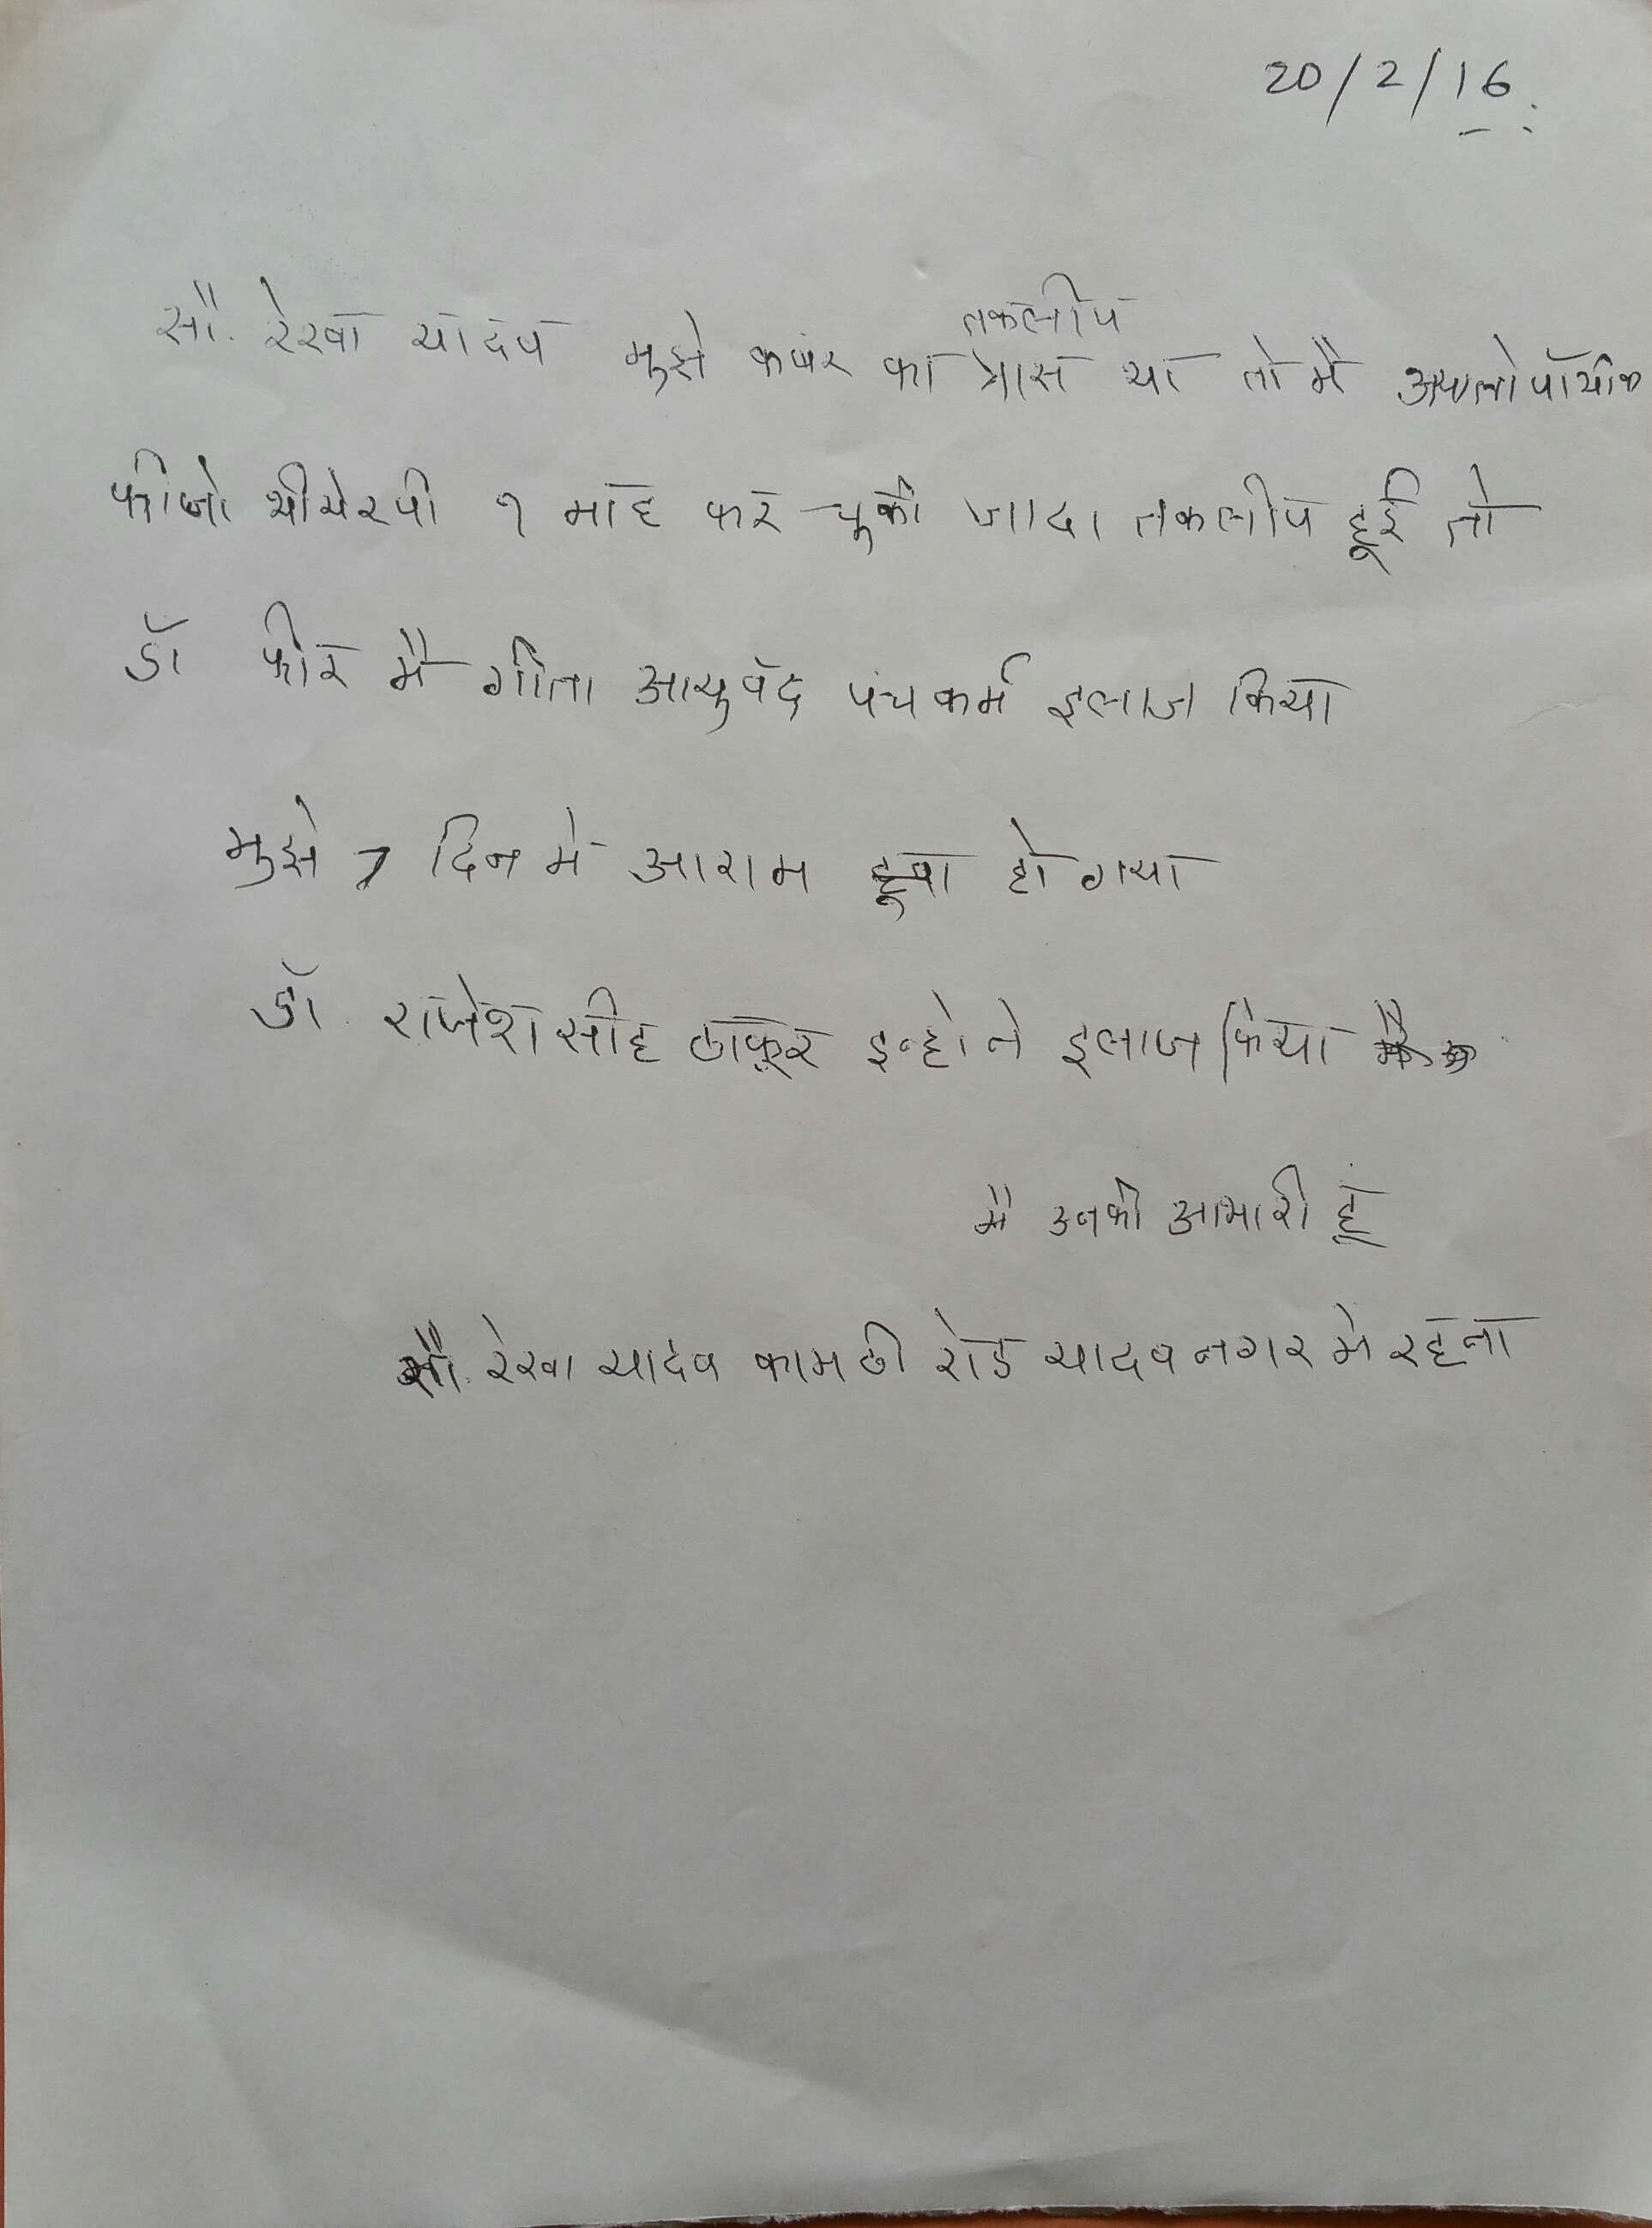 20/2/16.
तकलीप
सौ. रेखा यादव मुझे कमर का त्रास था तो मै अ‍ॅलोपॉथीक
फीजो थीयेरपी १ माह कर चुकी जादा तकलीप हूई तो
डॉ फीर मै गीता आयुवेद पंचकर्म इलाज किया
मुझे 7 दिन मे आराम हूवा हो गया
डॉ. राजेश सीह ठाकूर इन्होने इलाज किया
मै उनकी आभारी हूं
सौ. रेखा यादव कामठी रोड यादव नगर मे रहना